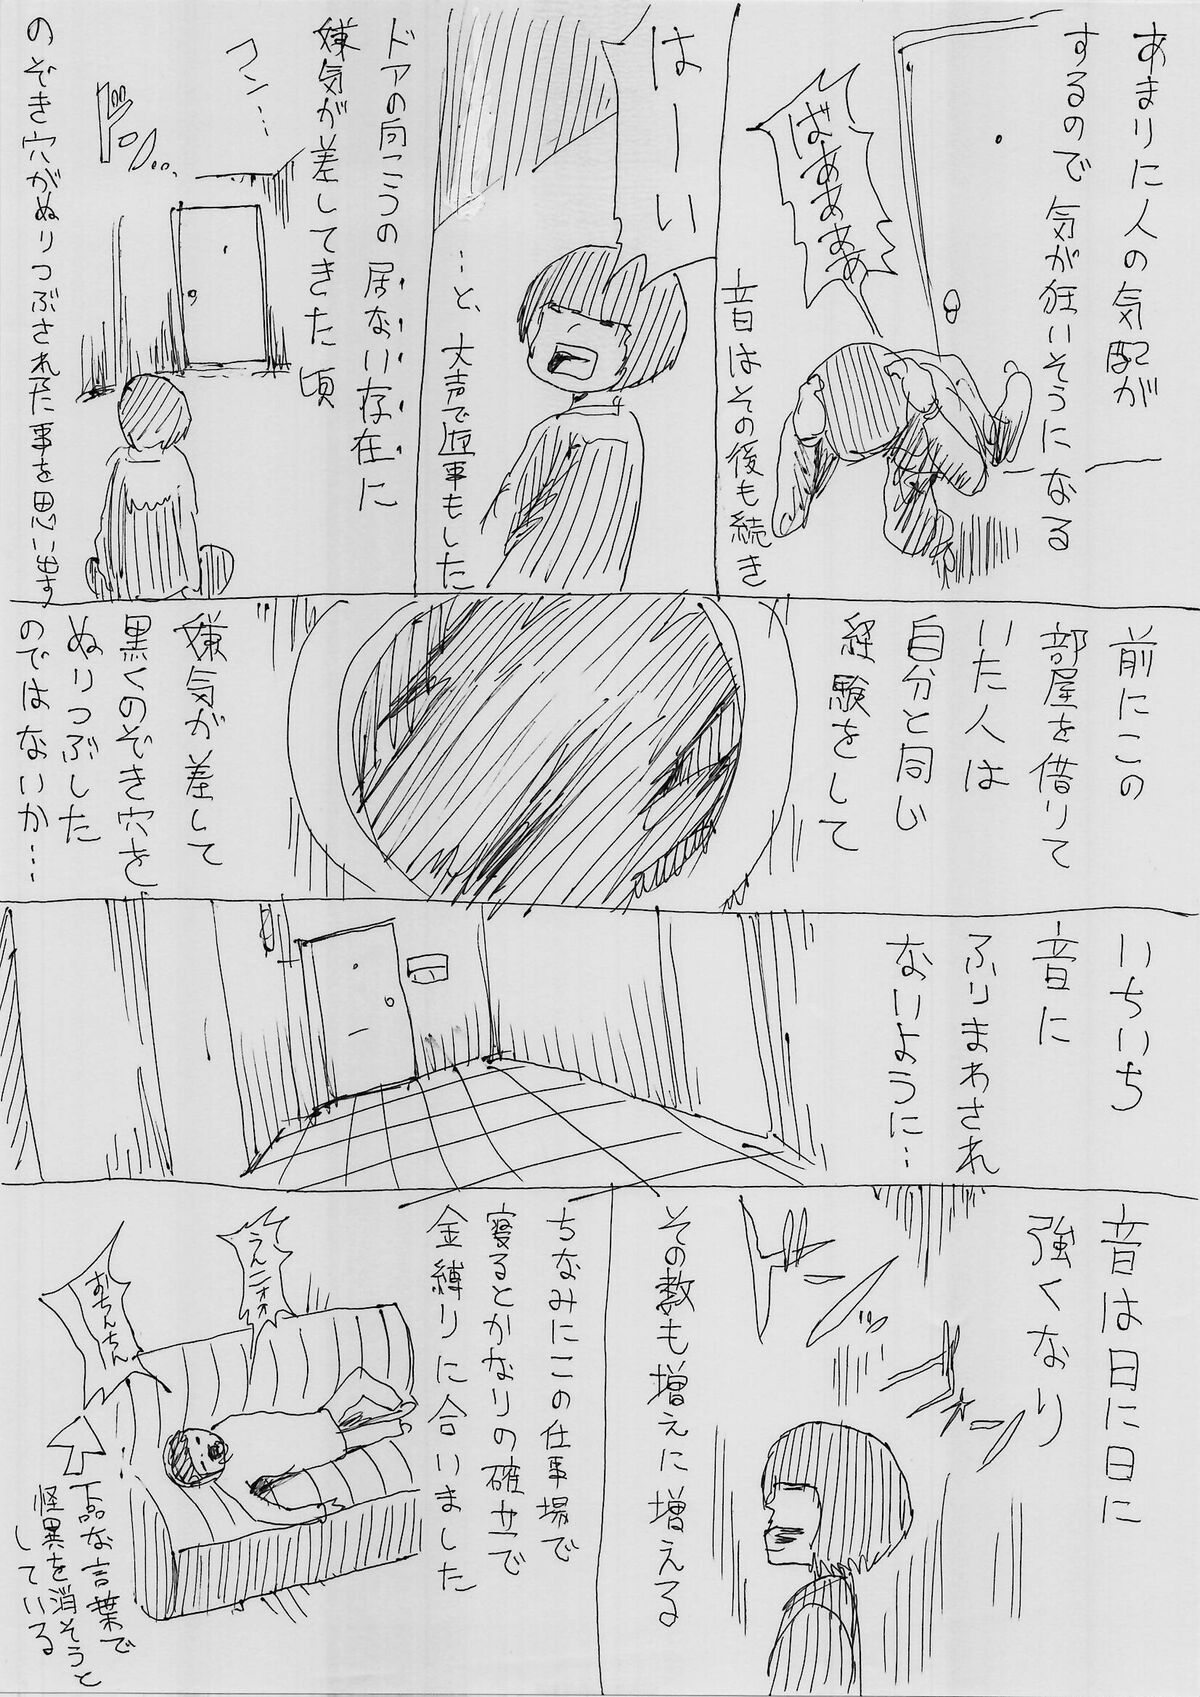 あまりに人の気配が
するので気が狂いそうになる
ばあああぁ
音はその後も続き
はーい
…と、大声で返事もした
ドアの向こうの居ない存在に
嫌気が差してきた頃
コン…
ドン…
のぞき穴がぬりつぶされた事を思い出す
前にこの
部屋を借りて
いた人は
自分と同じ
経験をして
嫌気が差して
黒くのぞき穴を
ぬりつぶした
のではないか…
いちいち
音に
ふりまわされ
ないように…
音は日に日に
強くなり
ドーンッ
その数も増えに増える
ちなみにこの仕事場で
寝るとかなりの確立で
金縛りに合いました
うんこォォ
おちんちん
下品な言葉で
怪異を消そうと
している